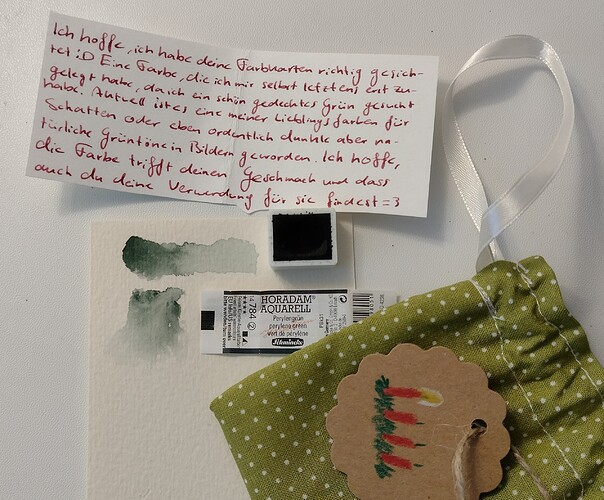 Ich hoffe, ich habe deine Farbkarten richtig gesich-
tet :D Eine Farbe, die ich mir selbst letztens erst zu-
gelegt habe, da ich ein schön gedecktes Grün gesucht
habe. Aktuell ist es eine meiner Lieblingsfarben für
Schatten oder eben ordentlich dunkle aber na-
türliche Grüntöne in Bildern geworden. Ich hoffe,
die Farbe trifft deinen Geschmack und dass
auch du deine Verwendung für sie findest =3
HORADAM®
AQUARELL
Perylengrün
perylene green
vert de pérylène
Schmincke
14 784 2